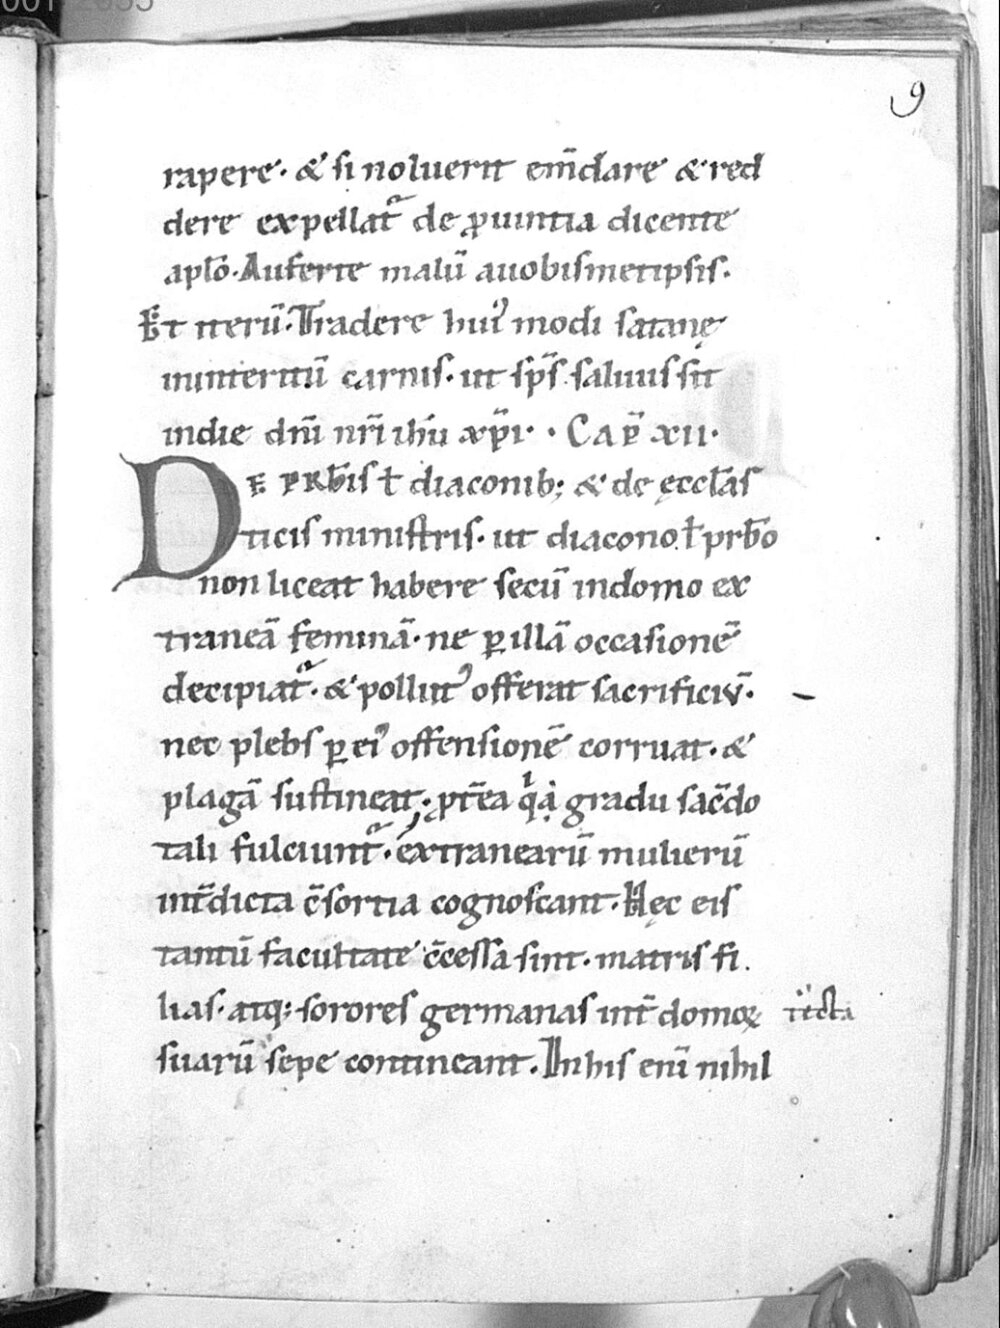 9
rapere· & si noluerit em̄dare & red
dere expellat᷑ de ꝓuintia dicente
apłō· Auferte malū auobismetipsis·
Et iterū· Tradere huiꝰ modi satanę
ininteritū carnis· ut sp̄s saluus sit
indie dn̄i nr̄i ihū xp̄i· · Cap̄ xii·
De prb̄is ł diaconib; & de ęccłas
ticis ministris· ut diacono ł prb̄o
non liceat habere secū indomo ex
traneā feminā· ne ꝑ illā occasionē
decipiat᷑· & pollutꝰ offerat sacrificiū·
nec plebs ꝑ eiꝰ offensionē corruat· &
plagā sustineat; ꝓt̄ea qͥa gradu sac̄do
tali fulciunt᷑· extranearū mulierū
int̄dicta c̄sortia cognoscant· Hęc eis
tantū facultate c̄cessa sint· matris fi
lias· atq; sorores germanas int̄ domoꝝ tecta
suarū sepe contineant· In his enī nihil